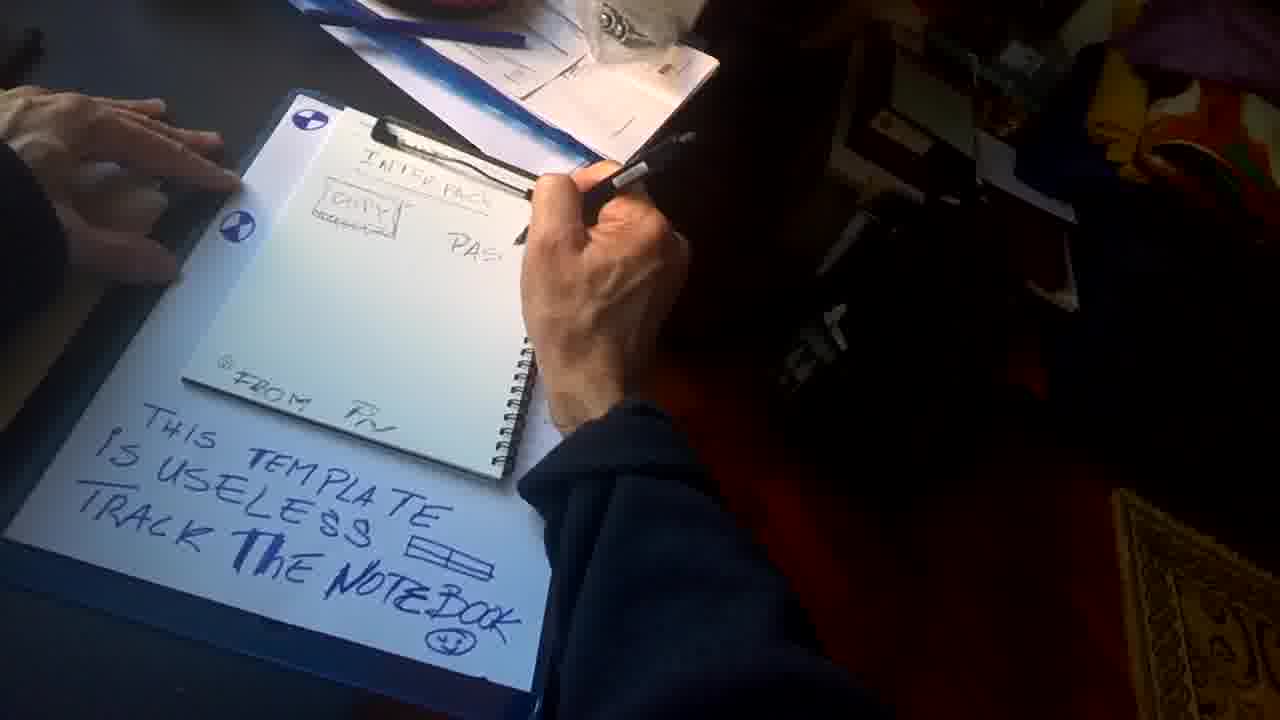 INTERFACE
COPY
PAS
FROM PN
THIS TEMPLATE
IS USELESS
TRACK THE NOTEBOOK